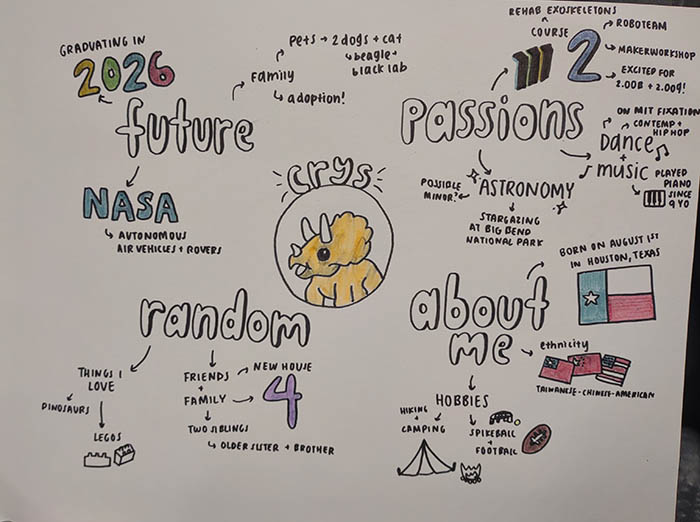 GRADUATING IN
2026
future
NASA
AUTONOMOUS
AIR VEHICLES + ROVERS
Family
Pets → 2 dogs + cat
beagle +
black lab
adoption!
crys
PASSIONS
REHAB EXOSKELETONS
COURSE
2
ROBOTEAM
MAKERWORKSHOP
EXCITED FOR
2.00B + 2.009!
ON MIT FIXATION
CONTEMP +
HIP HOP
Dance
+
music
PLAYED
PIANO
SINCE
9 YO
ASTRONOMY
POSSIBLE
MINOR?
STARGAZING
AT BIG BEND
NATIONAL PARK
random
THINGS I
LOVE
DINOSAURS
LEGOS
FRIENDS
+
FAMILY
NEW HOUSE
4
TWO SIBLINGS
OLDER SISTER + BROTHER
about
me
BORN ON AUGUST 1ST
IN HOUSTON, TEXAS
ethnicity
TAIWANESE-CHINESE-AMERICAN
HOBBIES
HIKING
+
CAMPING
SPIKEBALL
+
FOOTBALL